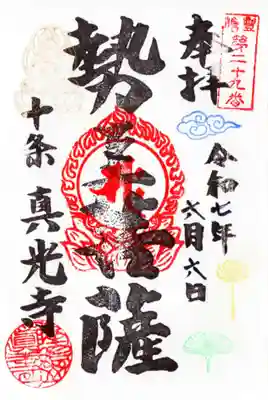 豊島
第二十九番
奉拝
令和七年
六月六日
勢至菩薩
十条
真光寺